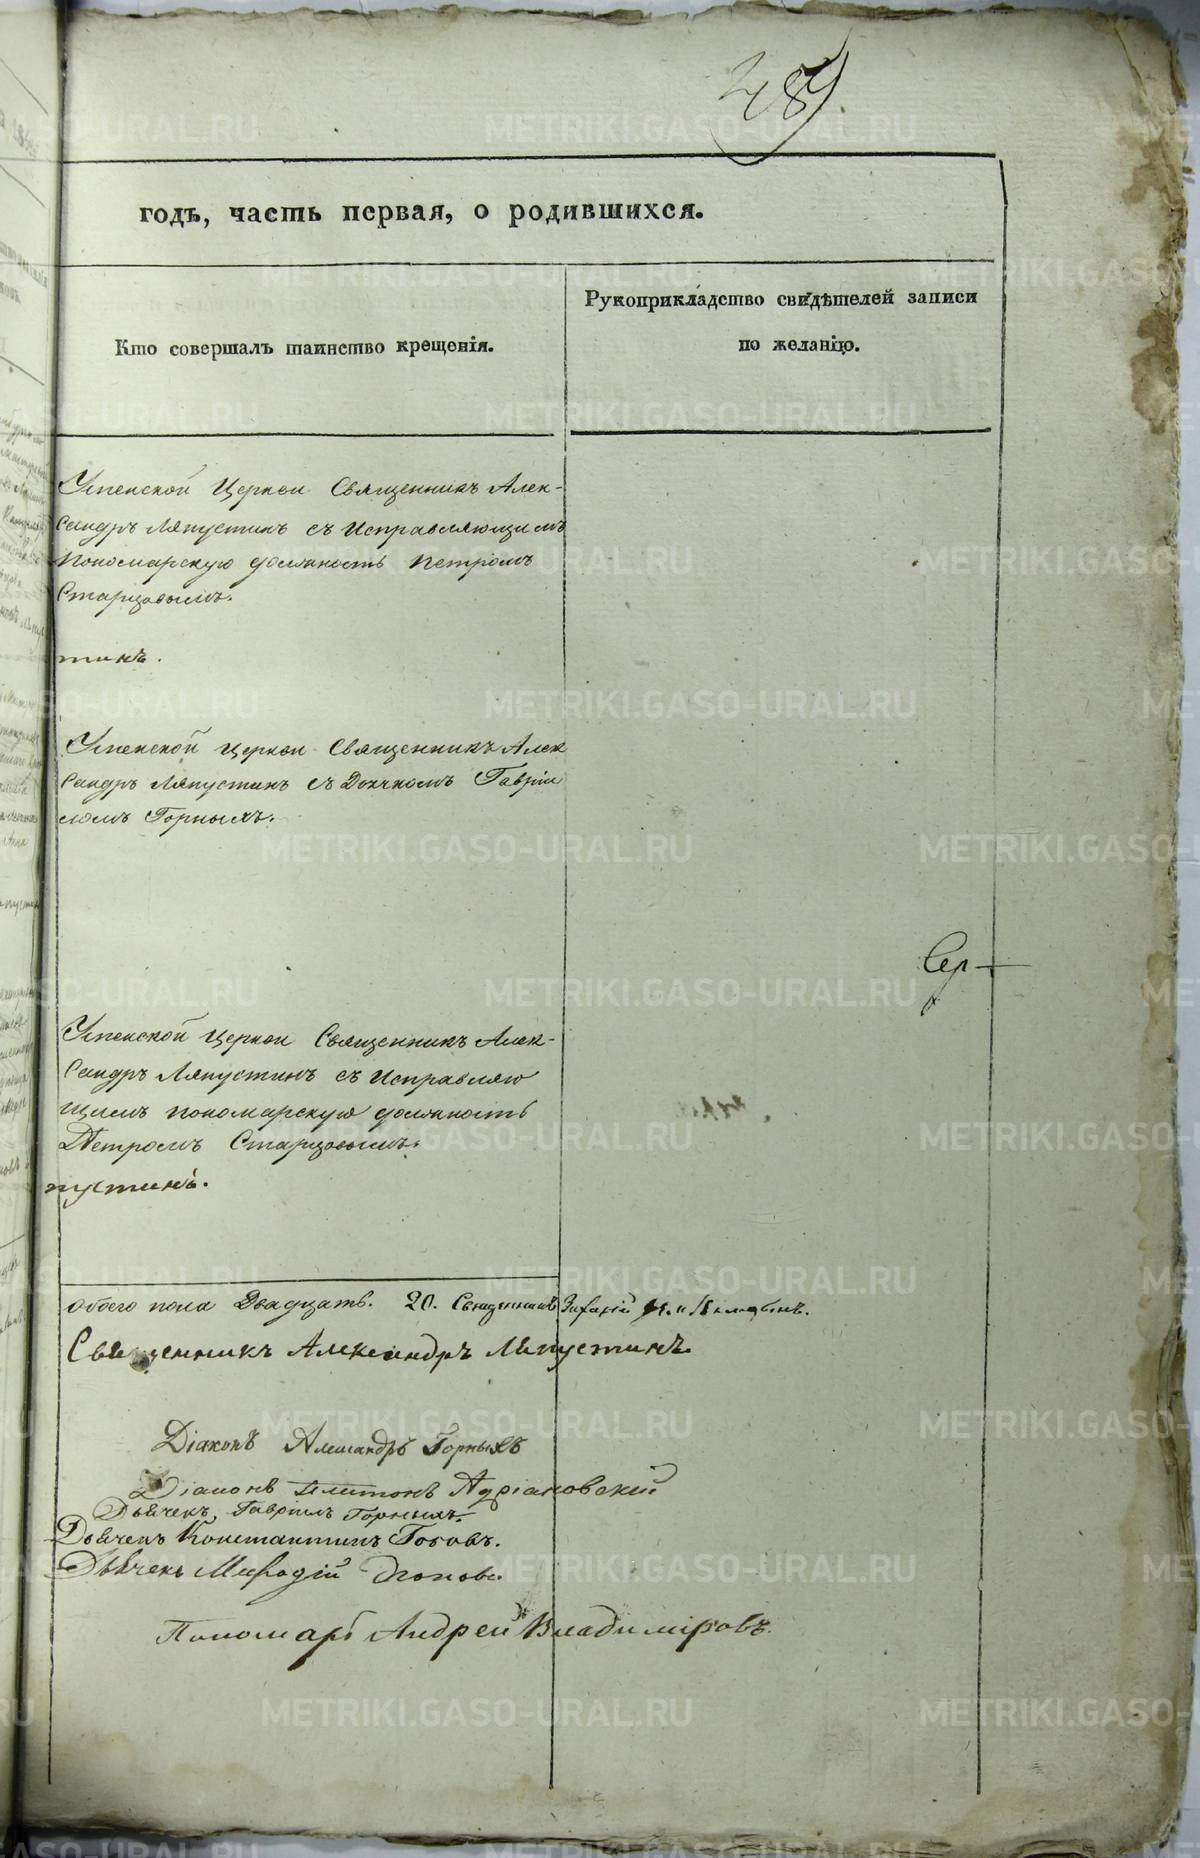 годъ, часть первая, о родившихся.
Кто совершалъ таинство крещенія.
Рукоприкладство свидѣтелей записи
по желанію.
Успенской Церкви Священникъ Алек-
сандръ Ляпустинъ съ Исправляющимъ
пономарскую должность Петромъ
Старцовымъ.
тинъ.
Успенской Церкви Священникъ Алек
сандръ Ляпустинъ съ Дьячкомъ Гаврiи
ломъ Горныхъ.
Сер
Успенской Церкви Священникъ Алек-
сандръ Ляпустинъ съ Исправляю
щимъ пономарскую должность
Петромъ Старцовымъ.
пустинъ.
обоего пола Двадцать. 20. Священникъ
Священникъ Александръ Ляпустинъ.
Дiаконъ Александръ Горныхъ
Дiаконъ Адрiановскiй
Дьячекъ Гаврiилъ Горныхъ.
Дьячекъ Константинъ Поповъ.
Дьячекъ Меѳодiй Поповъ.
Пономарь Андрей Владимiровъ.
METRIKI.GASO-URAL.RU